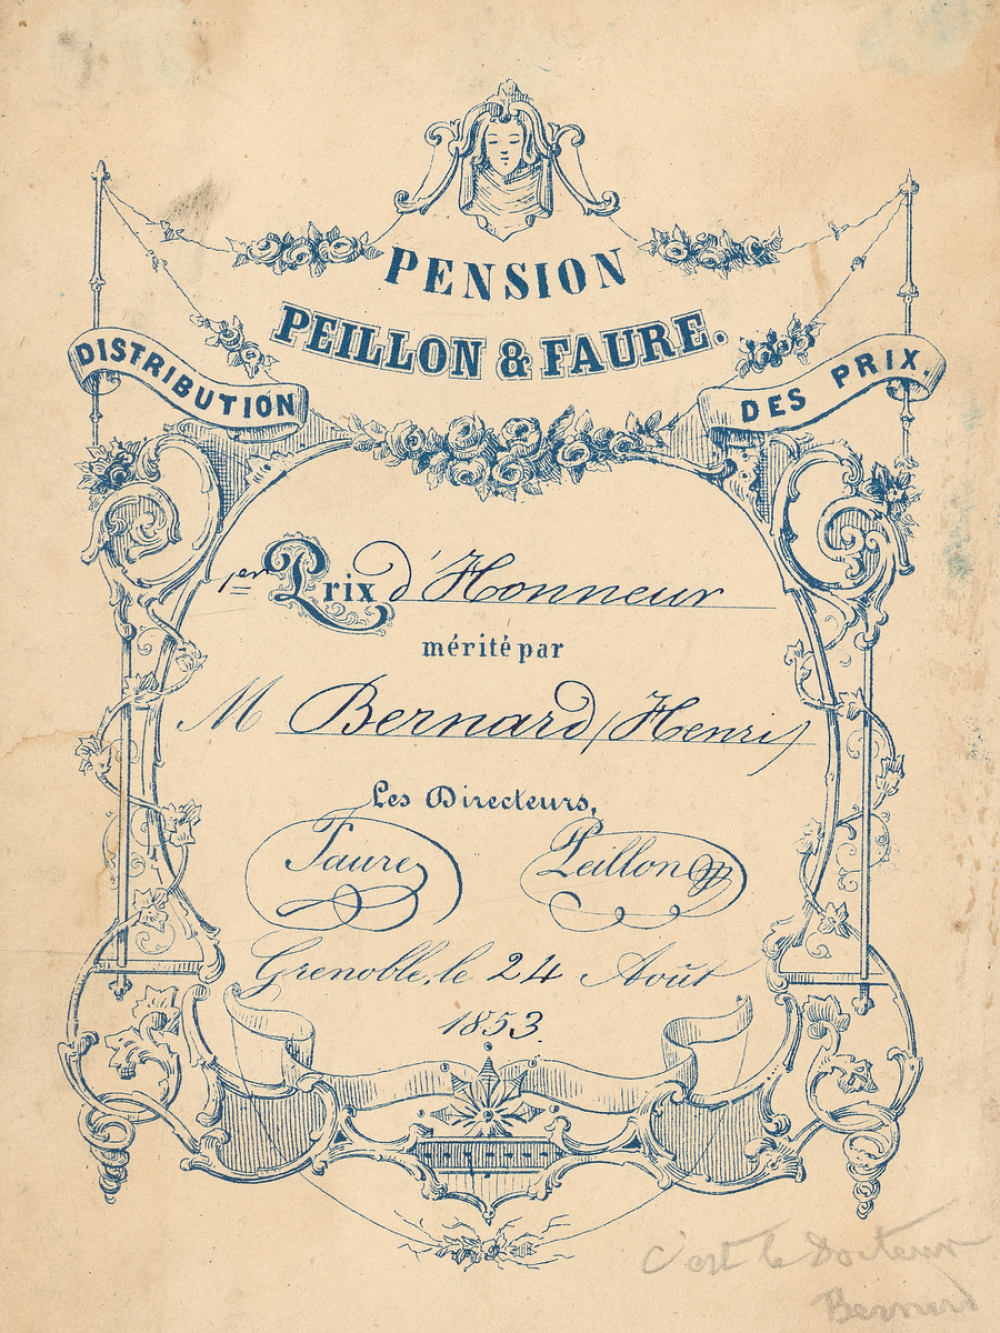 PENSION
PEILLON & FAURE.
DISTRIBUTION
DES PRIX.
1er Prix d'Honneur
mérité par
M Bernard (Henri)
Les Directeurs,
Faure Peillon
Grenoble, le 24 Août
1853.
C'est le Docteur
Bernard